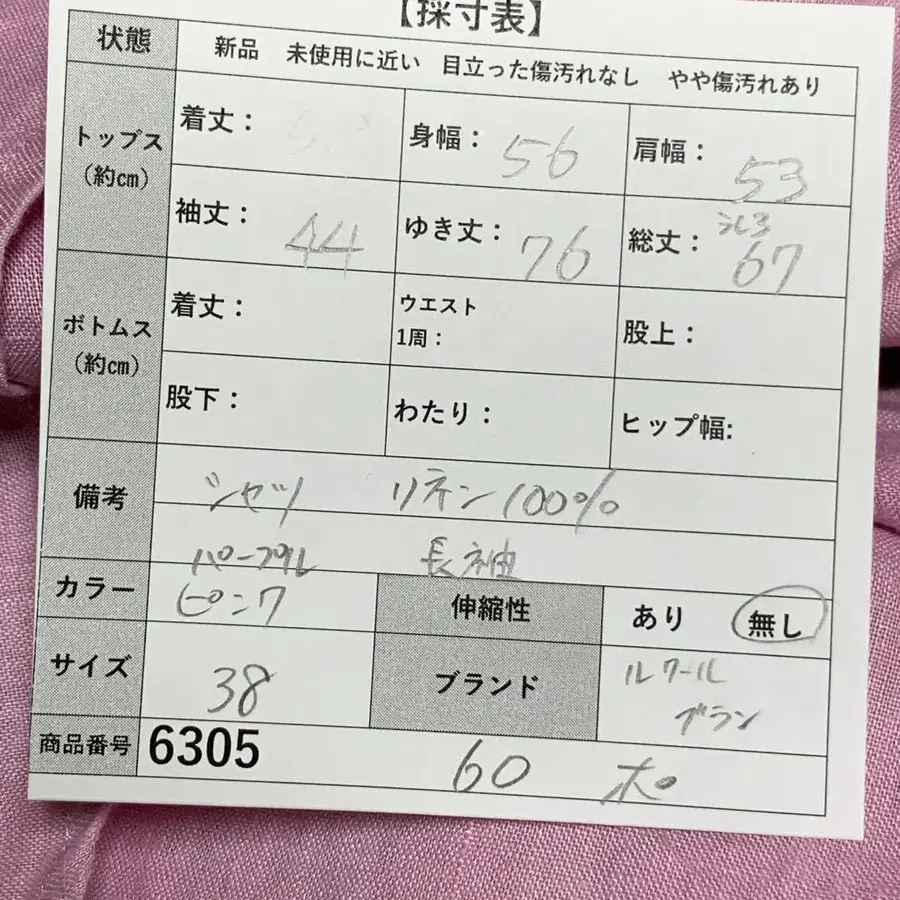 【採寸表】
状態 新品 未使用に近い 目立った傷汚れなし やや傷汚れあり
トップス（約cm） 着丈： 身幅：56 肩幅：53
袖丈：44 ゆき丈：76 総丈：67
ボトムス（約cm） 着丈： ウエスト1周： 股上：
股下： わたり： ヒップ幅:
備考 シャツ リネン100%
長袖
カラー パープル ピンク 伸縮性 あり 無し
サイズ 38 ブランド ルクールブラン
商品番号 6305 60 ポ